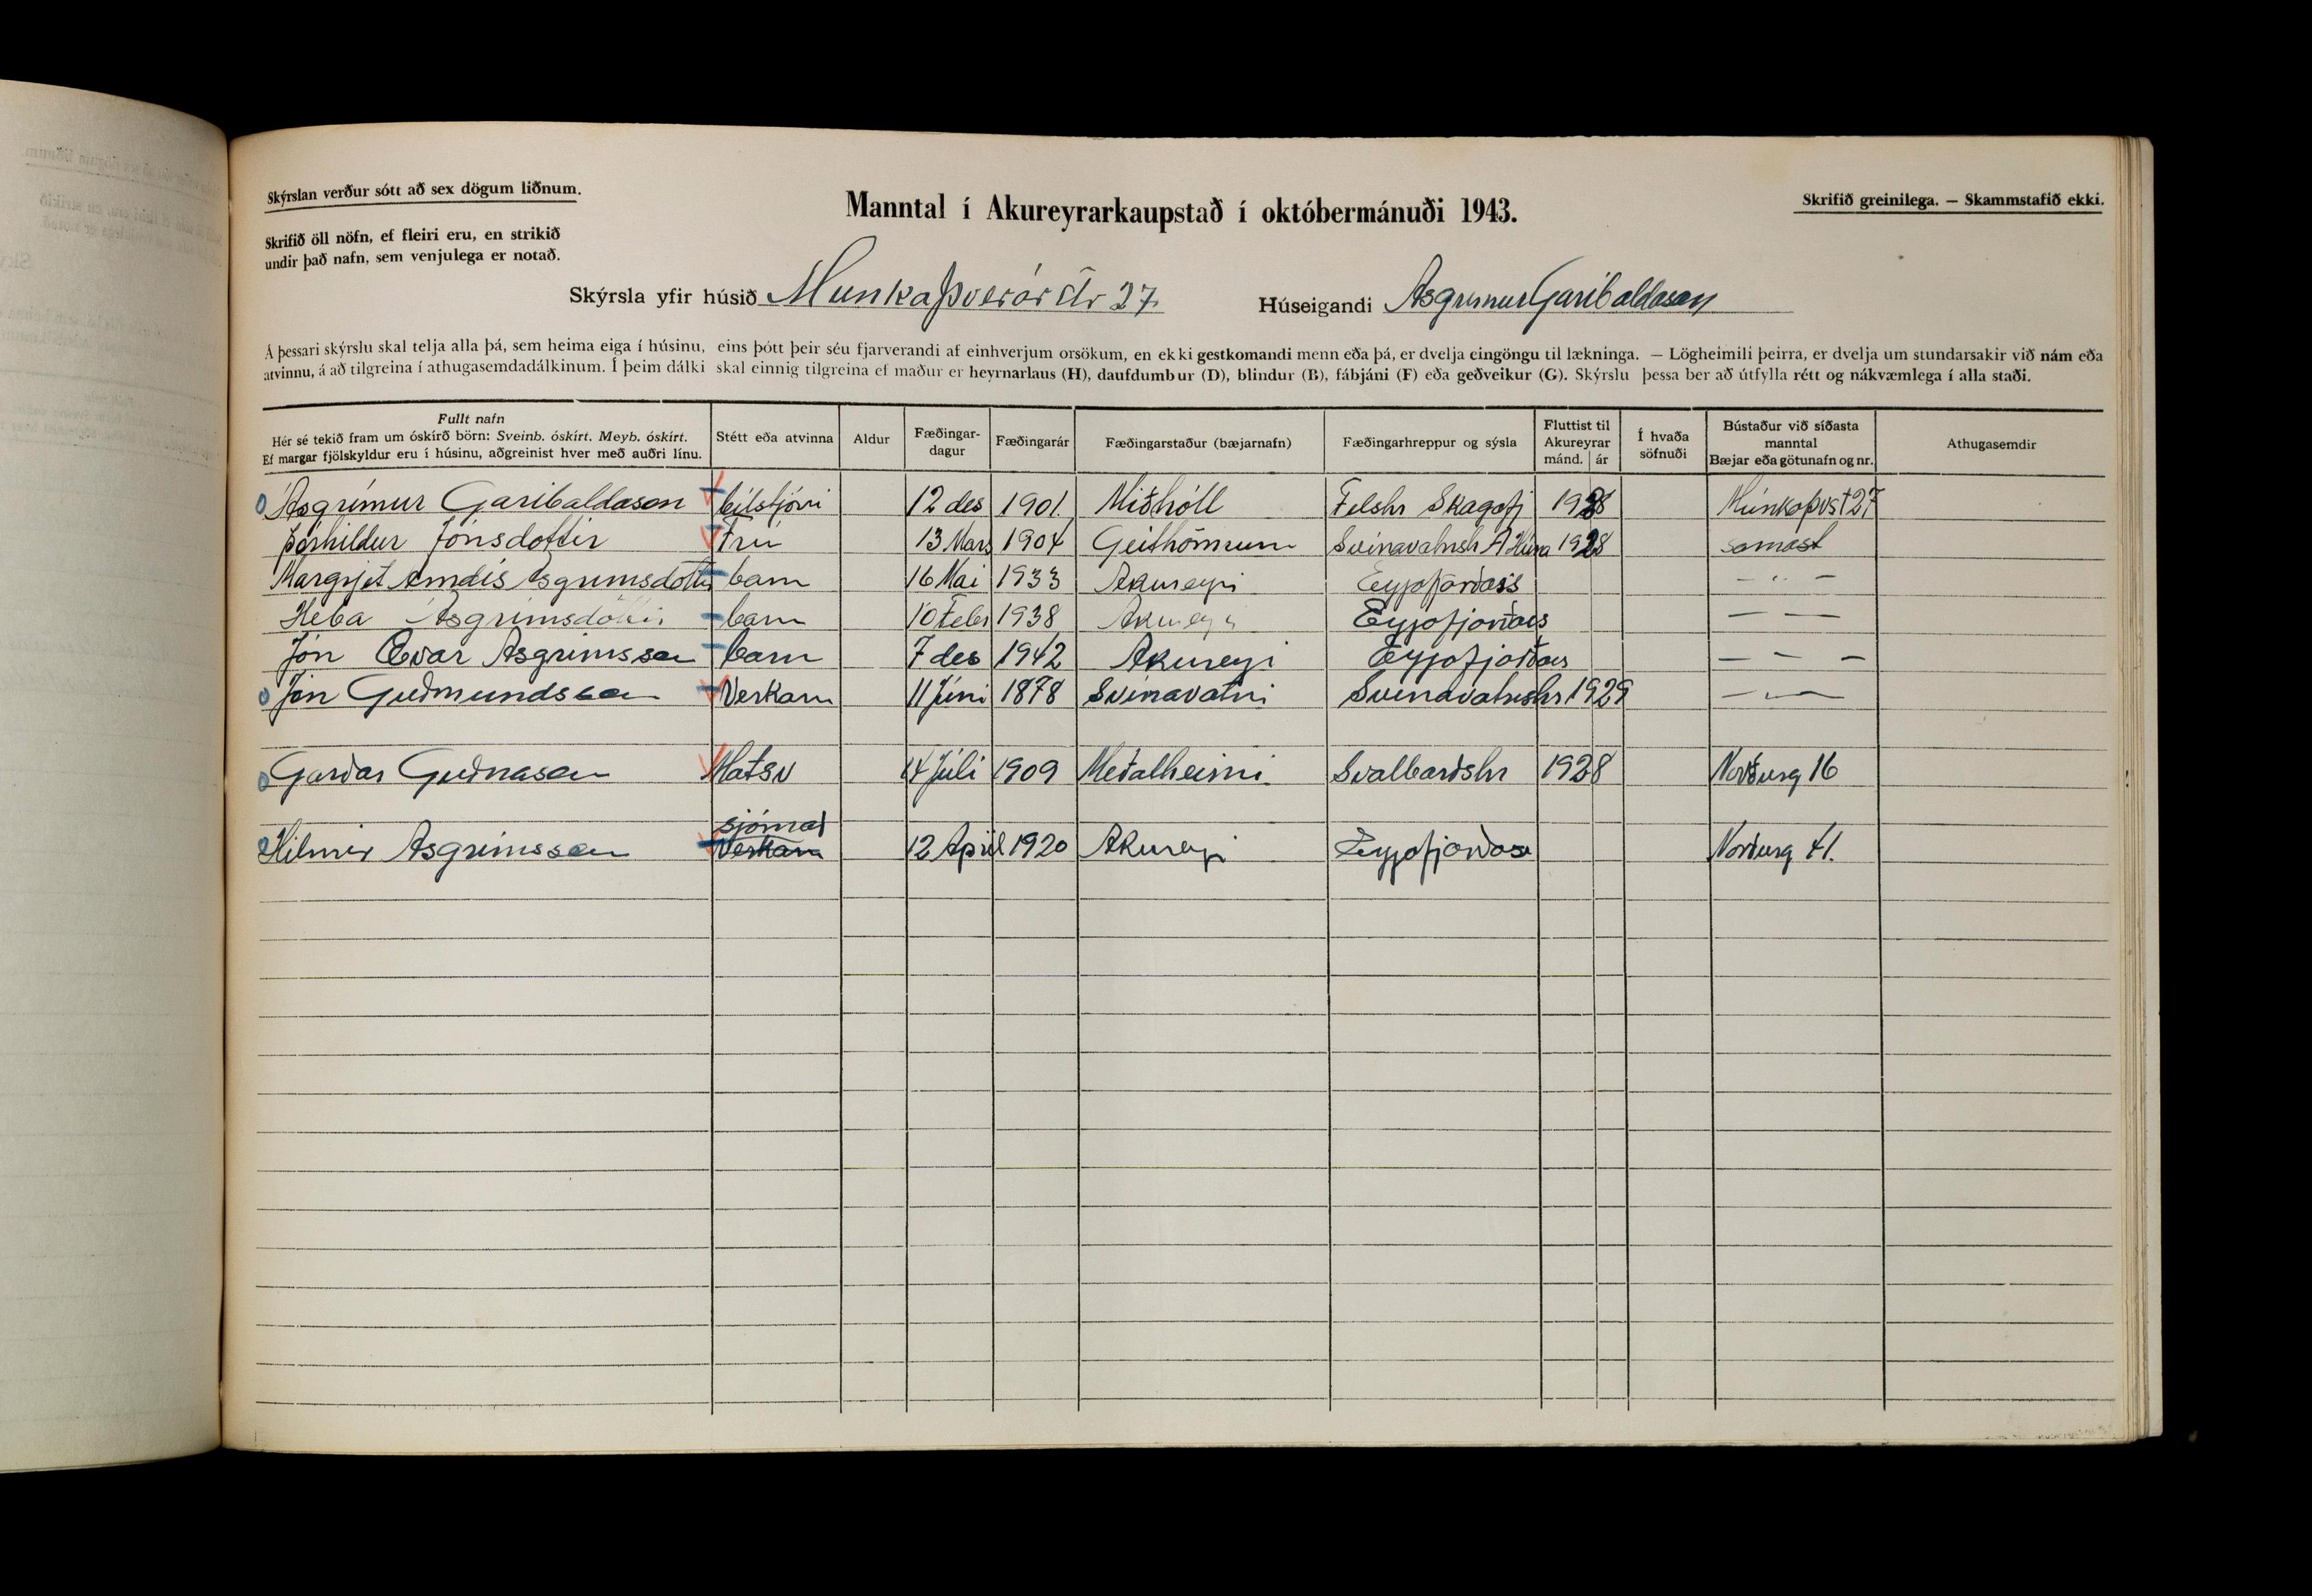 Skýrslan verður sótt að sex dögum liðnum.
Manntal í Akureyrarkaupstað í októbermánuði 1943.
Skrifið greinilega. — Skammstafið ekki.
Skrifið öll nöfn, ef fleiri eru, en strikið
undir það nafn, sem venjulega er notað.
Skýrsla yfir húsið Munkaþverár str 27 Húseigandi Asgrimur Garibaldason
Á þessari skýrslu skal telja alla þá, sem heima eiga í húsinu, eins þótt þeir séu fjarverandi af einhverjum orsökum, en ekki gestkomandi menn eða þá, er dvelja eingöngu til lækninga. — Lögheimili þeirra, er dvelja um stundarsakir við nám eða
atvinnu, á að tilgreina í athugasemdadálkinum. Í þeim dálki skal einnig tilgreina ef maður er heyrnarlaus (H), daufdumbur (D), blindur (B), fábjáni (F) eða geðveikur (G). Skýrslu þessa ber að útfylla rétt og nákvæmlega í alla staði.
Fullt nafn
Hér sé tekið fram um óskírð börn: Sveinb. óskírt. Meyb. óskírt.
Ef margar fjölskyldur eru í húsinu, aðgreinist hver með auðri línu.
Stétt eða atvinna
Aldur
Fæðingar-
dagur
Fæðingarár
Fæðingarstaður (bæjarnafn)
Fæðingarhreppur og sýsla
Fluttist til
Akureyrar
mánd. ár
Í hvaða
söfnuði
Bústaður við síðasta
manntal
Bæjar eða götunafn og nr.
Athugasemdir
Ásgrímur Garibaldason bílstjóri 12 des 1901 Miðhóll Felshr Skagafj 1928 Múnkaþvst 27
Þórhildur Jónsdottir Frú 13 Mars 1904 Geithömrum Svínavatnsh A Húna 1928 samast
Margrjet Arndís Asgrimsdottir barn 16 Mai 1933 Akureyri Eyjafjarðars — " —
Heba Asgrimsdóttir barn 10 Febr 1938 Akureyri Eyjafjarðars — —
Jón Ævar Asgrimsson barn 7 des 1942 Akureyri Eyjafjarðars — — —
Jón Guðmundsson Verkam 11 Júni 1878 Svínavatni Svinavatnshr 1929 — —
Garðar Guðnason Matsv 14 Júli 1909 Meðalheimi Svalbarðshr 1928 Norðurg 16
sjómað
Hilmir Asgrimsson Verkam 12 April 1920 Akureyri Eyjafjarðars Norðurg 41.